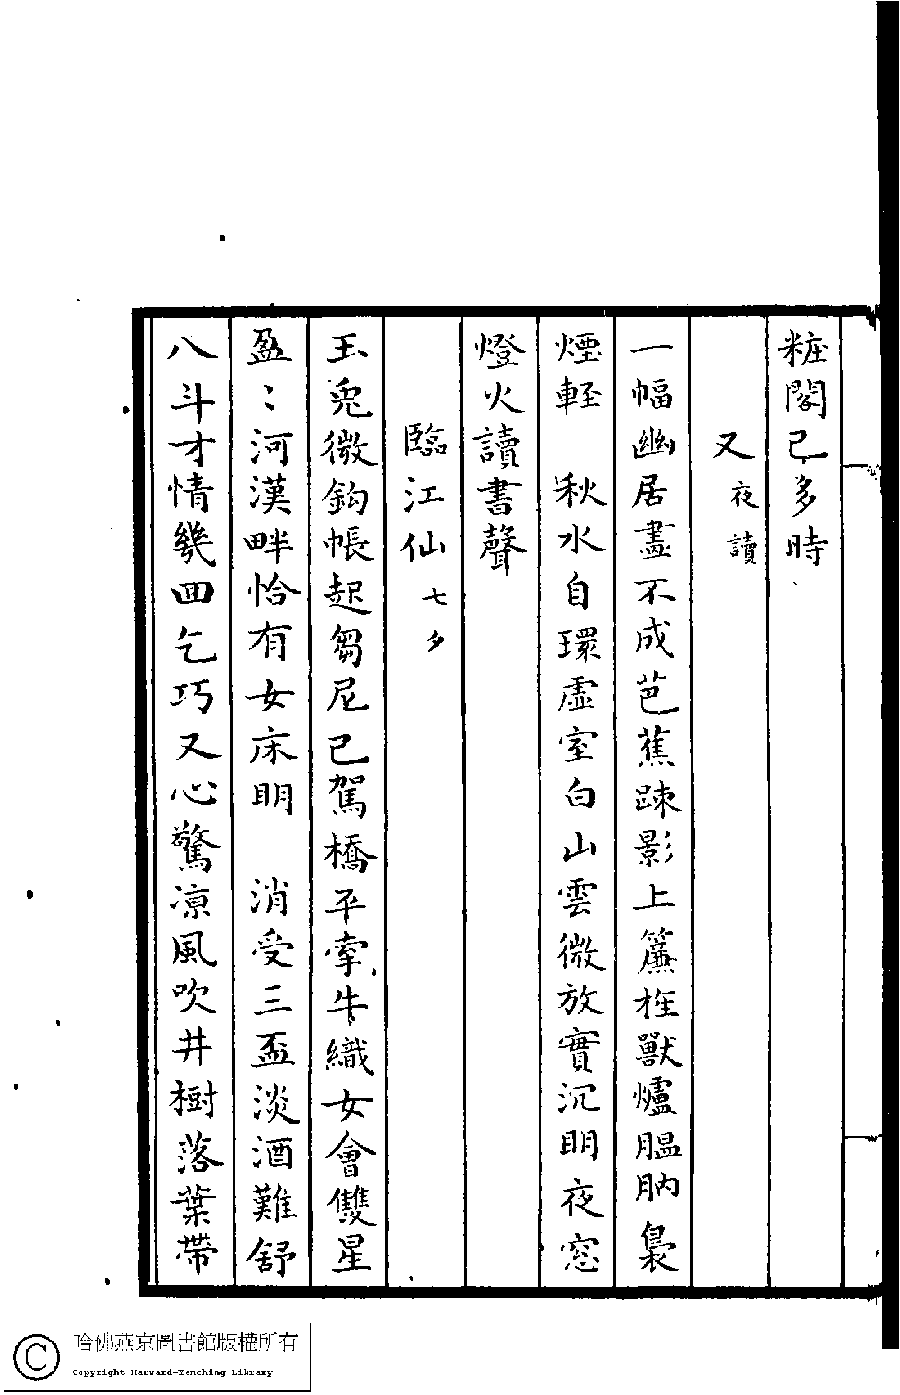 粧閣已多時
又 夜讀
一幅幽居畫不成芭蕉踈影上簾旌獸爐腽肭裊
煙軽　秋水自環虛室白山雲微放實沉明夜窓
燈火讀書聲
臨江仙 七夕
玉兎微鈎帳起芻尼已駕橋平牽牛織女會雙星
盈〻河漢畔恰有女床明　消受三盃淡酒難舒
八斗才情幾回乞巧又心驚凉風吹井樹落葉帶
哈佛燕京圖書館版權所有
Copyright Harvard-Yenching Library